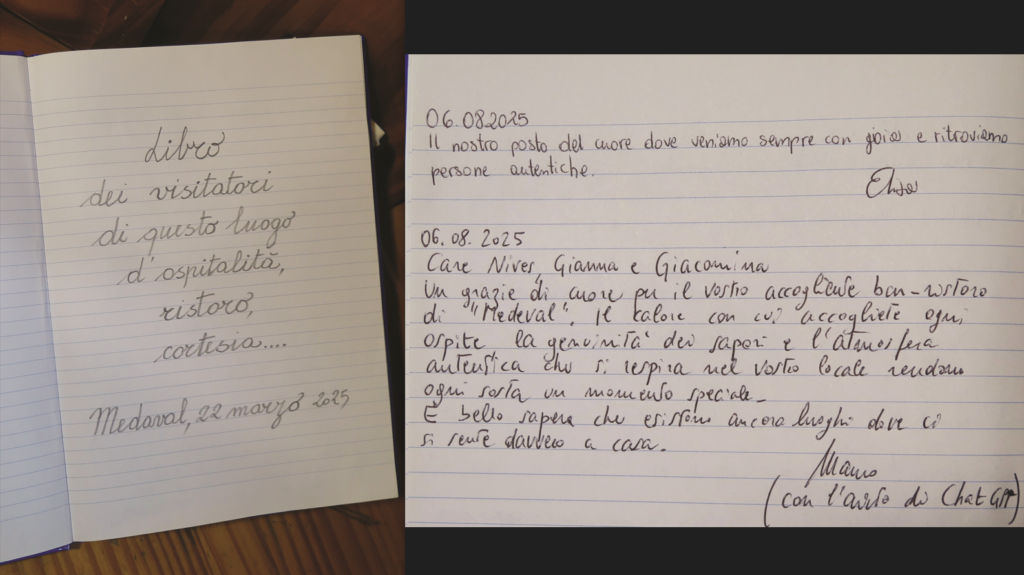 Libro
dei visitatori
di questo luogo
d'ospitalità,
ristoro,
cortesia....
Medaval, 22 marzo 2025
06.08.2025
Il nostro posto del cuore dove veniamo sempre con gioia e ritroviamo
persone autentiche.
Elisa
06.08.2025
Care Nives, Gianna e Giacomina
Un grazie di cuore per il vostro accogliente bar-ristoro
di "Medeval". Il calore con cui accogliete ogni
ospite la genuinità dei sapori e l'atmosfera
autentica che si respira nel vostro locale rendono
ogni sosta un momento speciale.
È bello sapere che esistono ancora luoghi dove ci
si sente davvero a casa.
(con l'aiuto di ChatGPT)